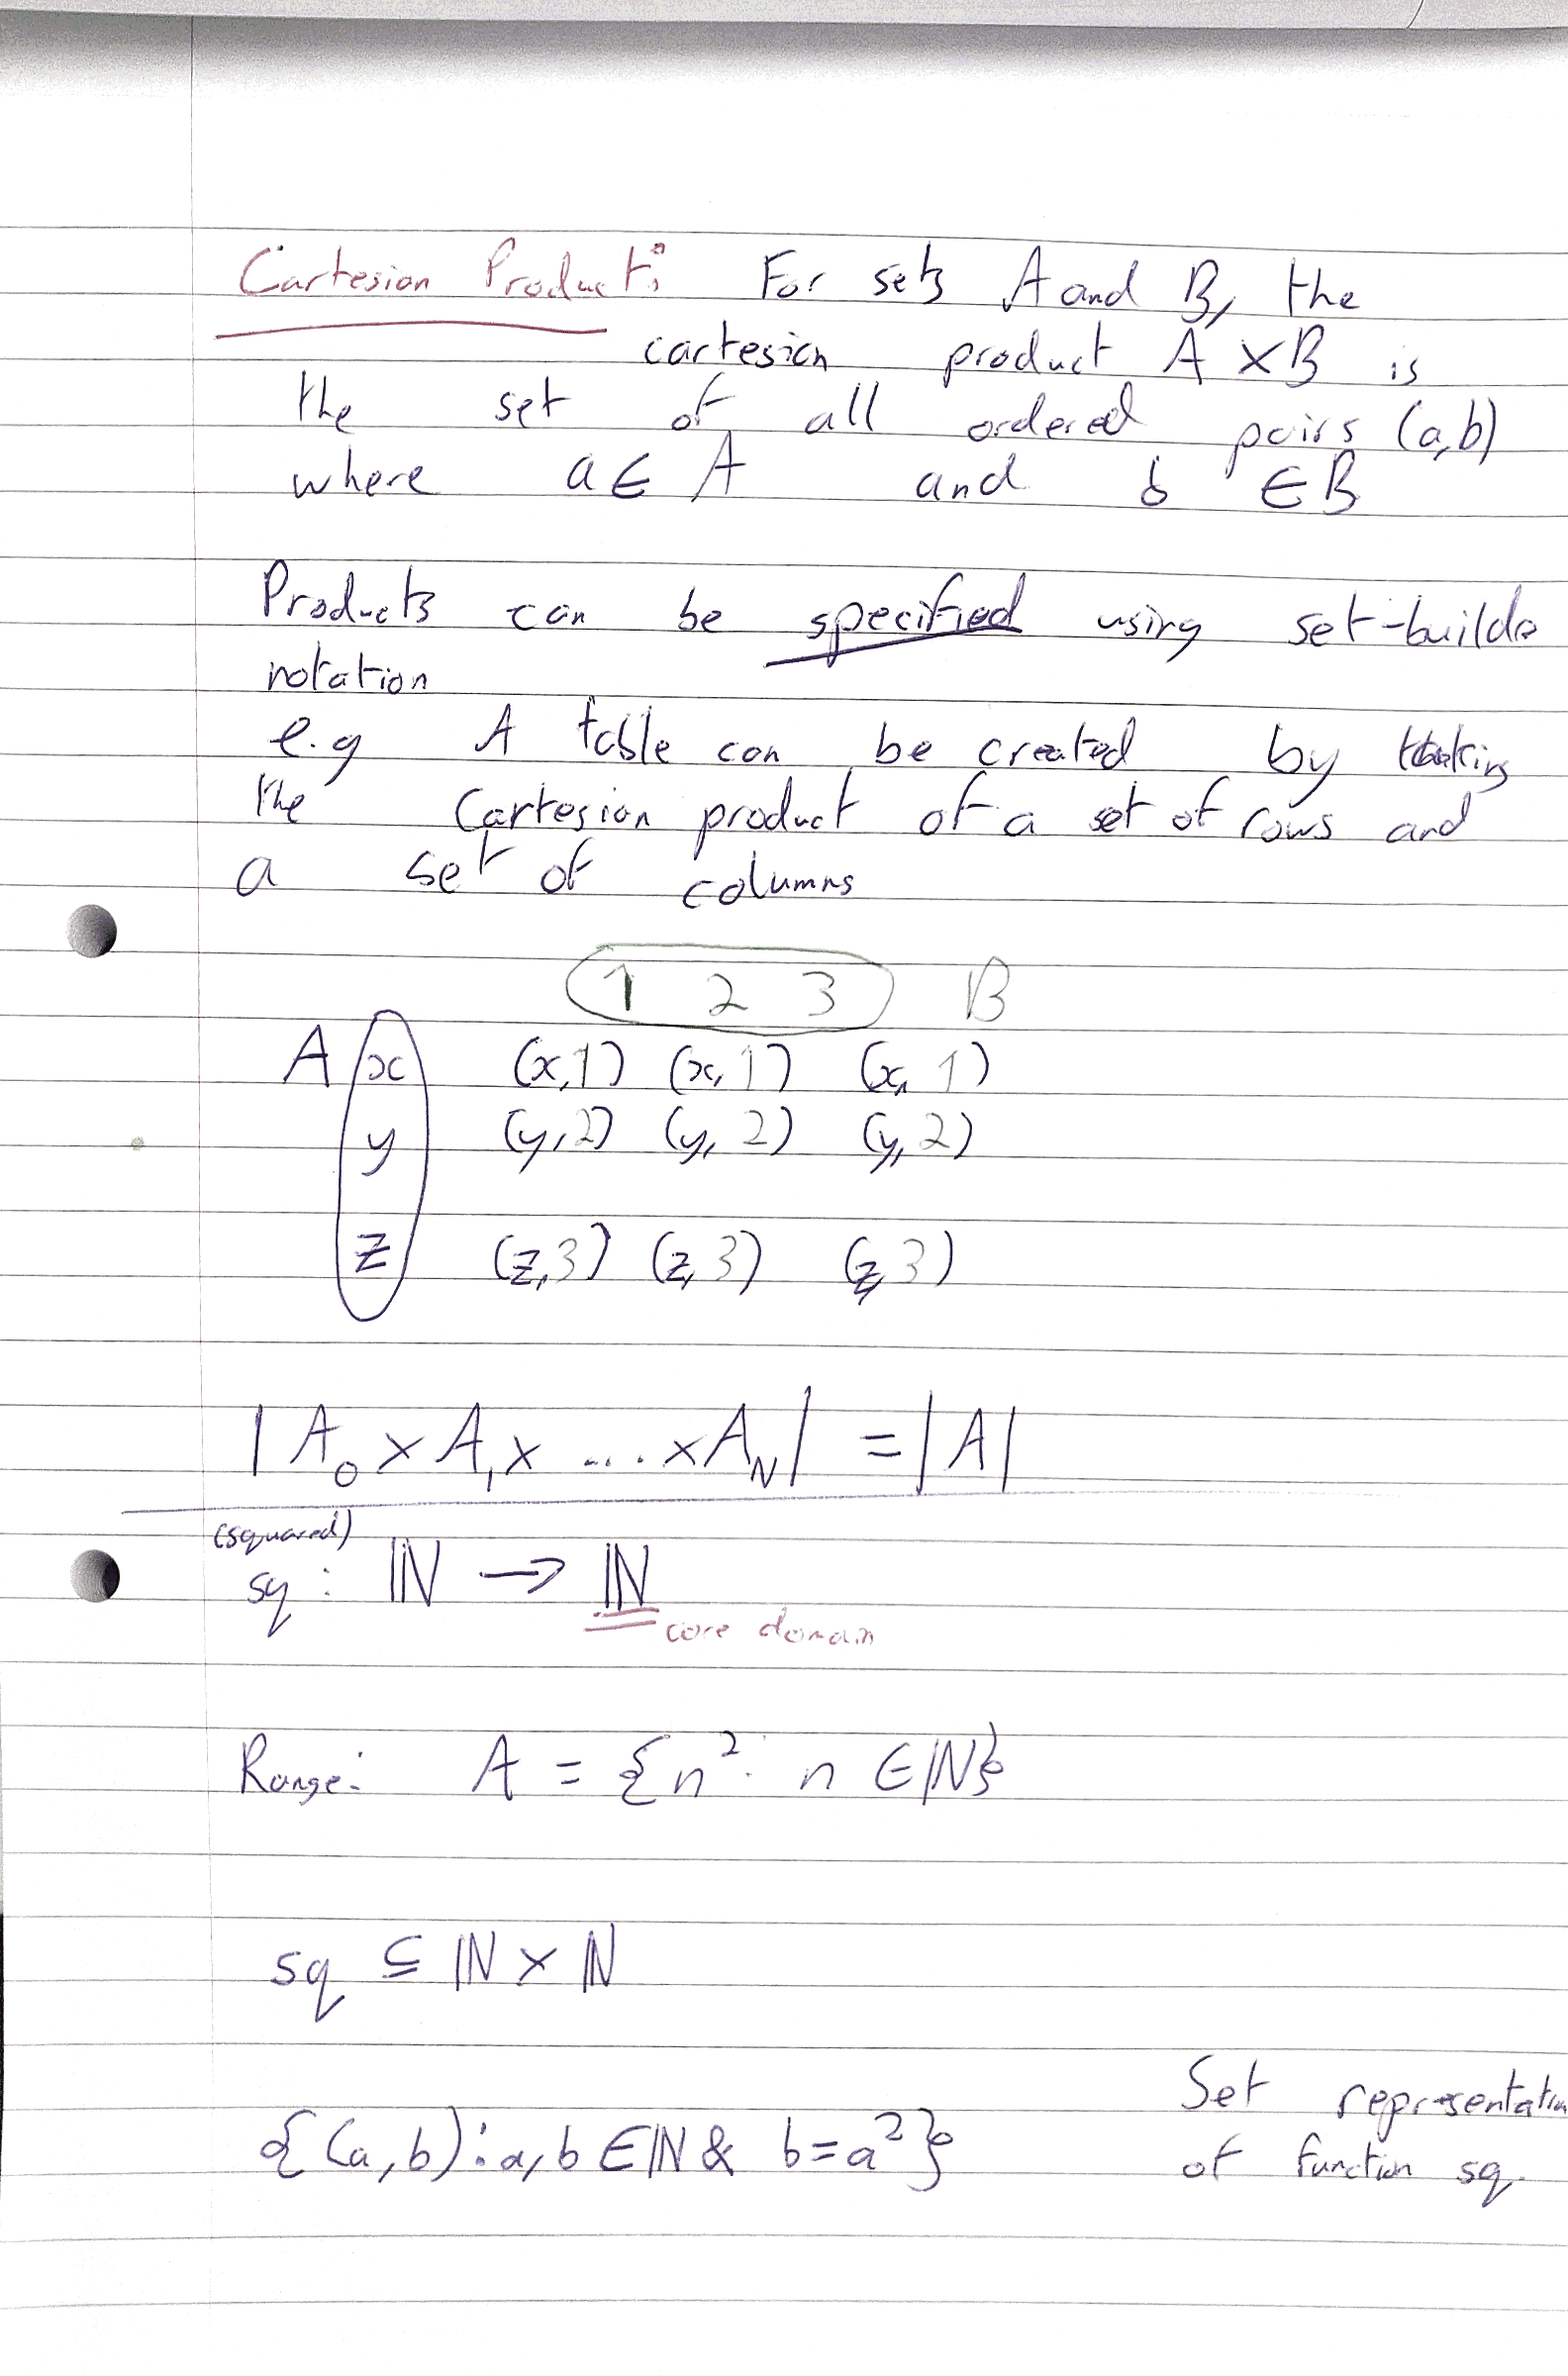 Cartesian Product: For sets A and B, the
cartesian product A × B is
the set of all ordered pairs (a,b)
where a ∈ A and b ∈ B
Products can be specified using set-builde
notation
e.g A table can be created by taking
the Cartesian product of a set of rows and
a set of columns
1 2 3 B
A x (x,1) (x,1) (x,1)
y (y,2) (y,2) (y,2)
z (z,3) (z,3) (z,3)
|A₀ × A₁ × .... × A_N| = |A|
(squared)
sq : ℕ → ℕ
core domain
Range: A = {n² : n ∈ ℕ}
sq ⊆ ℕ × ℕ
Set representation
{(a,b) : a,b ∈ ℕ & b = a²}
of function sq.